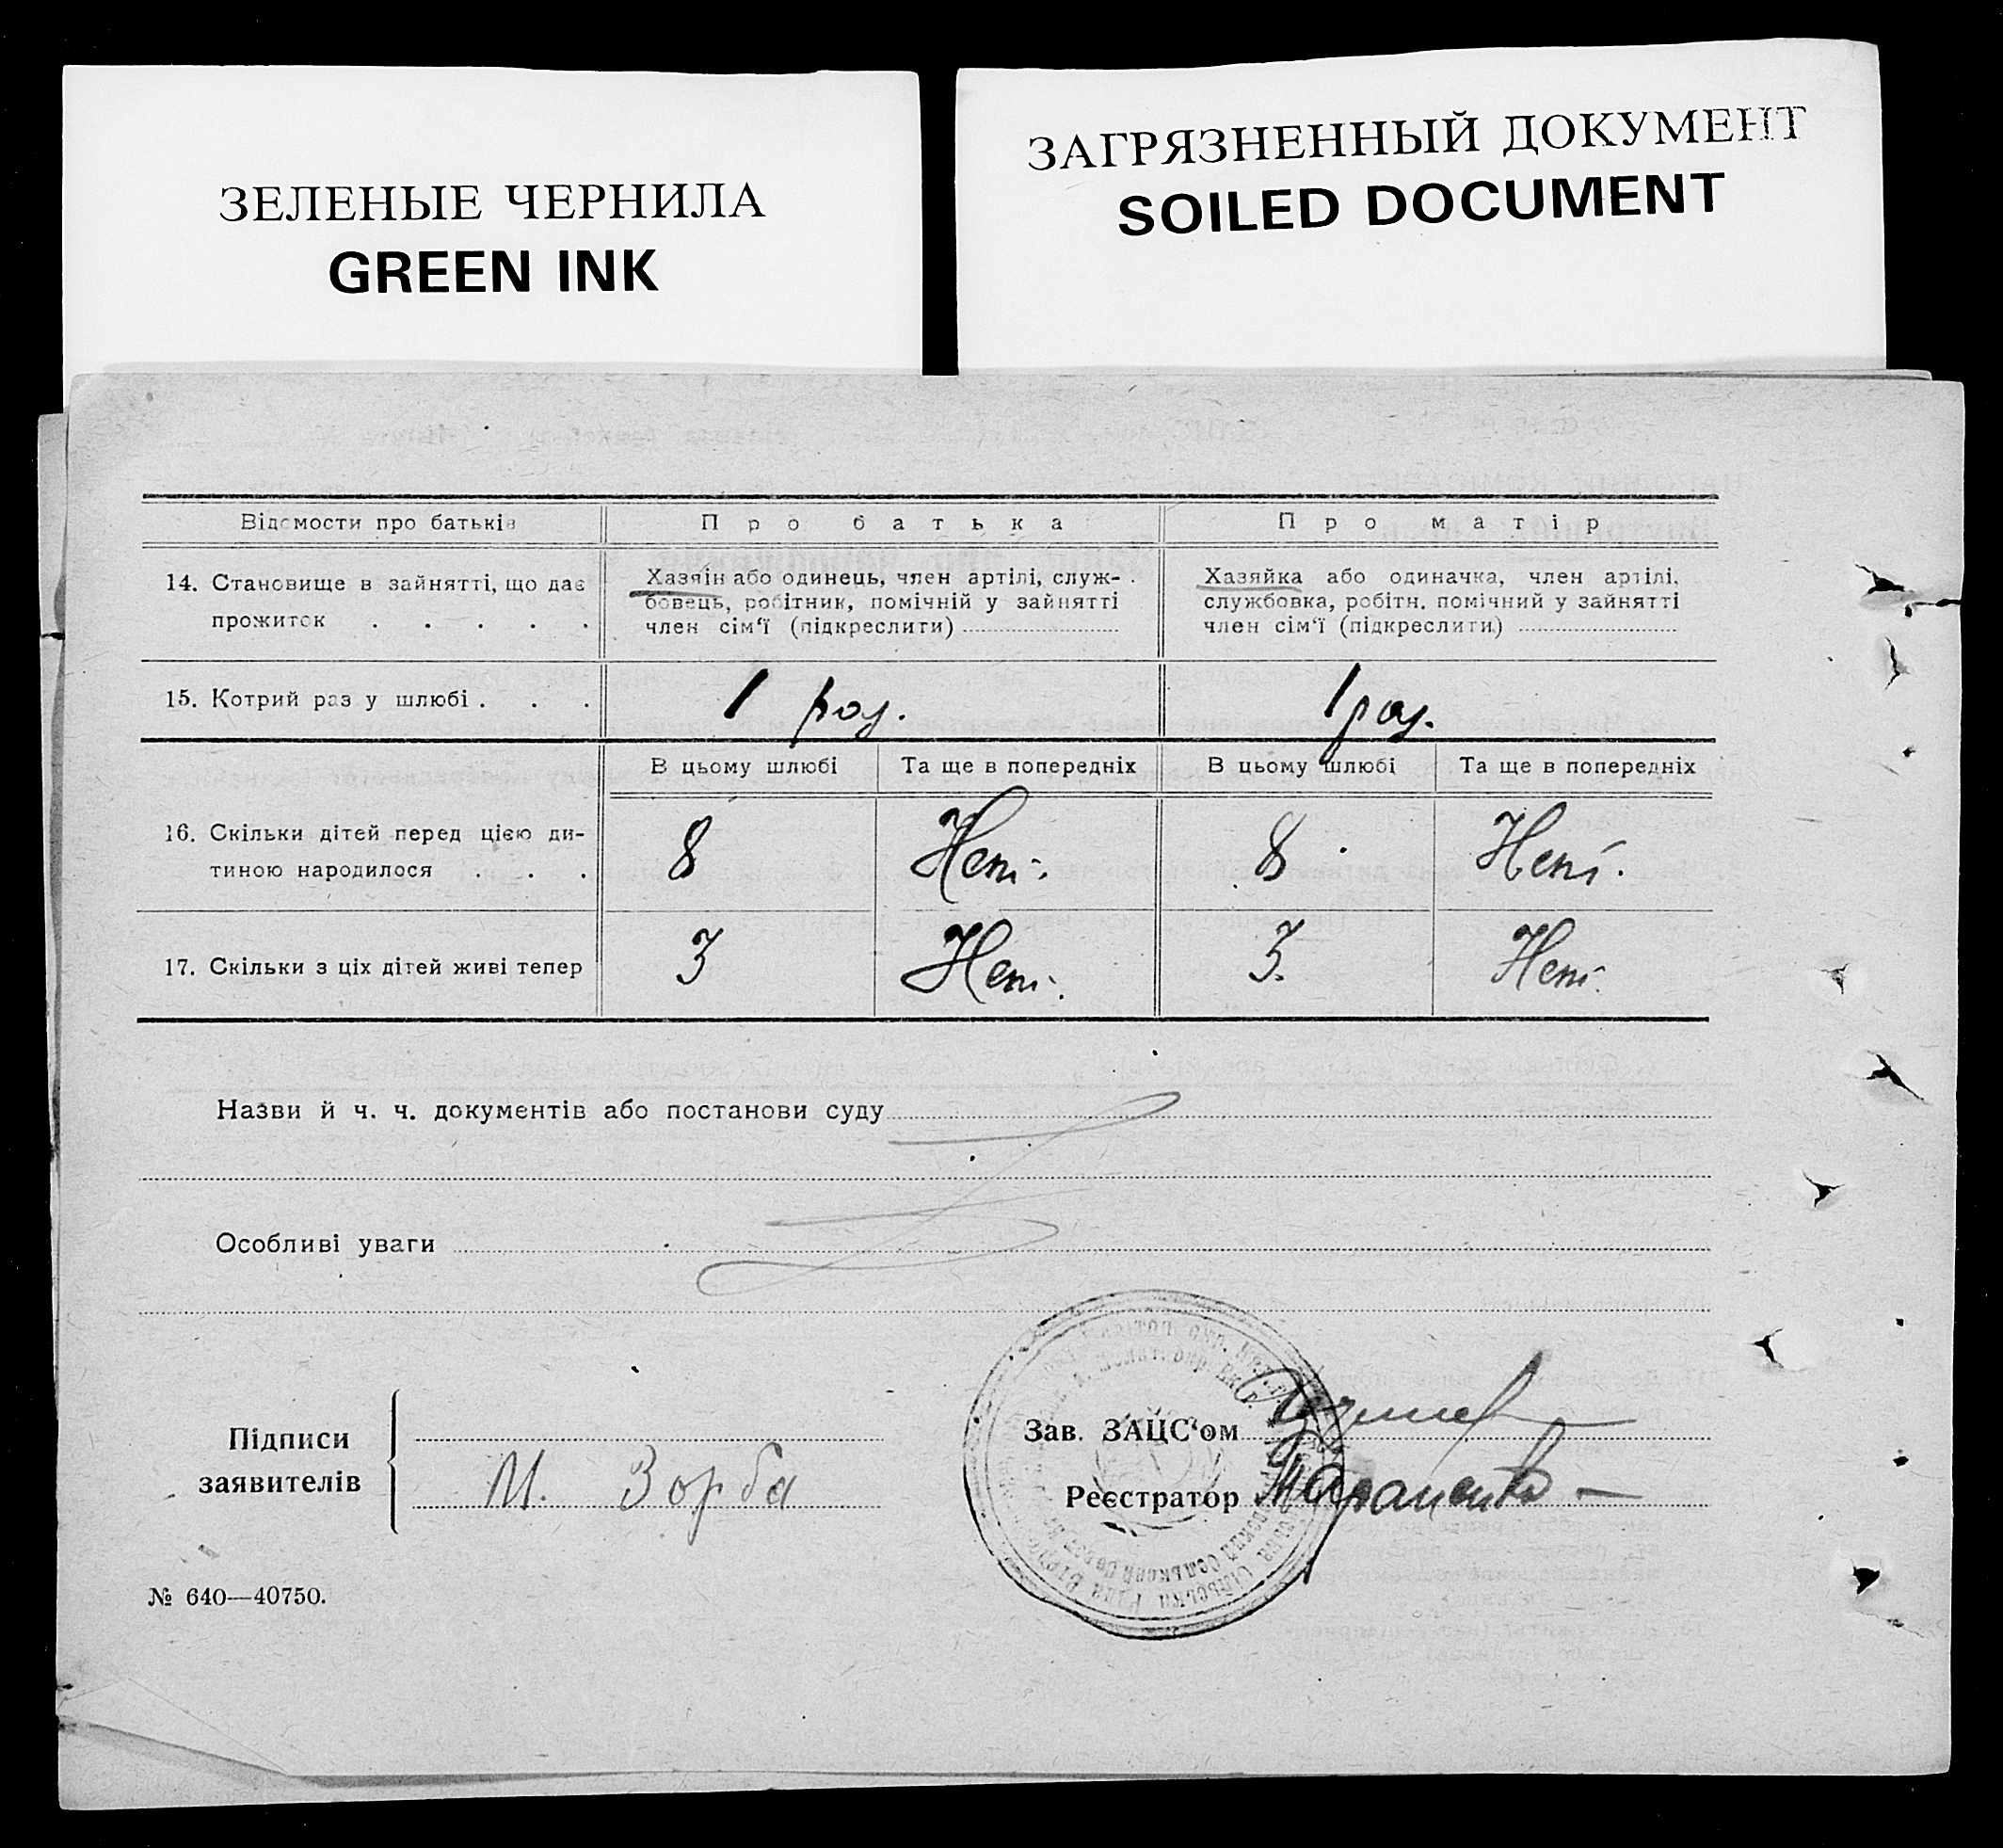 ЗЕЛЕНЫЕ ЧЕРНИЛА
GREEN INK
ЗАГРЯЗНЕННЫЙ ДОКУМЕНТ
SOILED DOCUMENT
Відомости про батьків
Про батька
Про матір
14. Становище в зайнятті, що дає
прожиток . . . . .
Хазяїн або одинець, член артілі, служ-
бовець, робітник, помічній у зайнятті
член сім'ї (підкреслити)
Хазяйка або одиначка, член артілі,
службовка, робітн. помічний у зайнятті
член сім'ї (підкреслити)
15. Котрий раз у шлюбі . . .
1 раз.
1 раз.
В цьому шлюбі
Та ще в попередніх
В цьому шлюбі
Та ще в попередніх
16. Скільки дітей перед цією ди-
тиною народилося . . .
8
Нет.
8
Нет.
17. Скільки з ціх дітей живі тепер
3
Нет.
3.
Нет.
Назви й ч. ч. документів або постанови суду
Особливі уваги
Підписи
заявителів
М. Зорба
Зав. ЗАЦС'ом
Реєстратор
№ 640—40750.